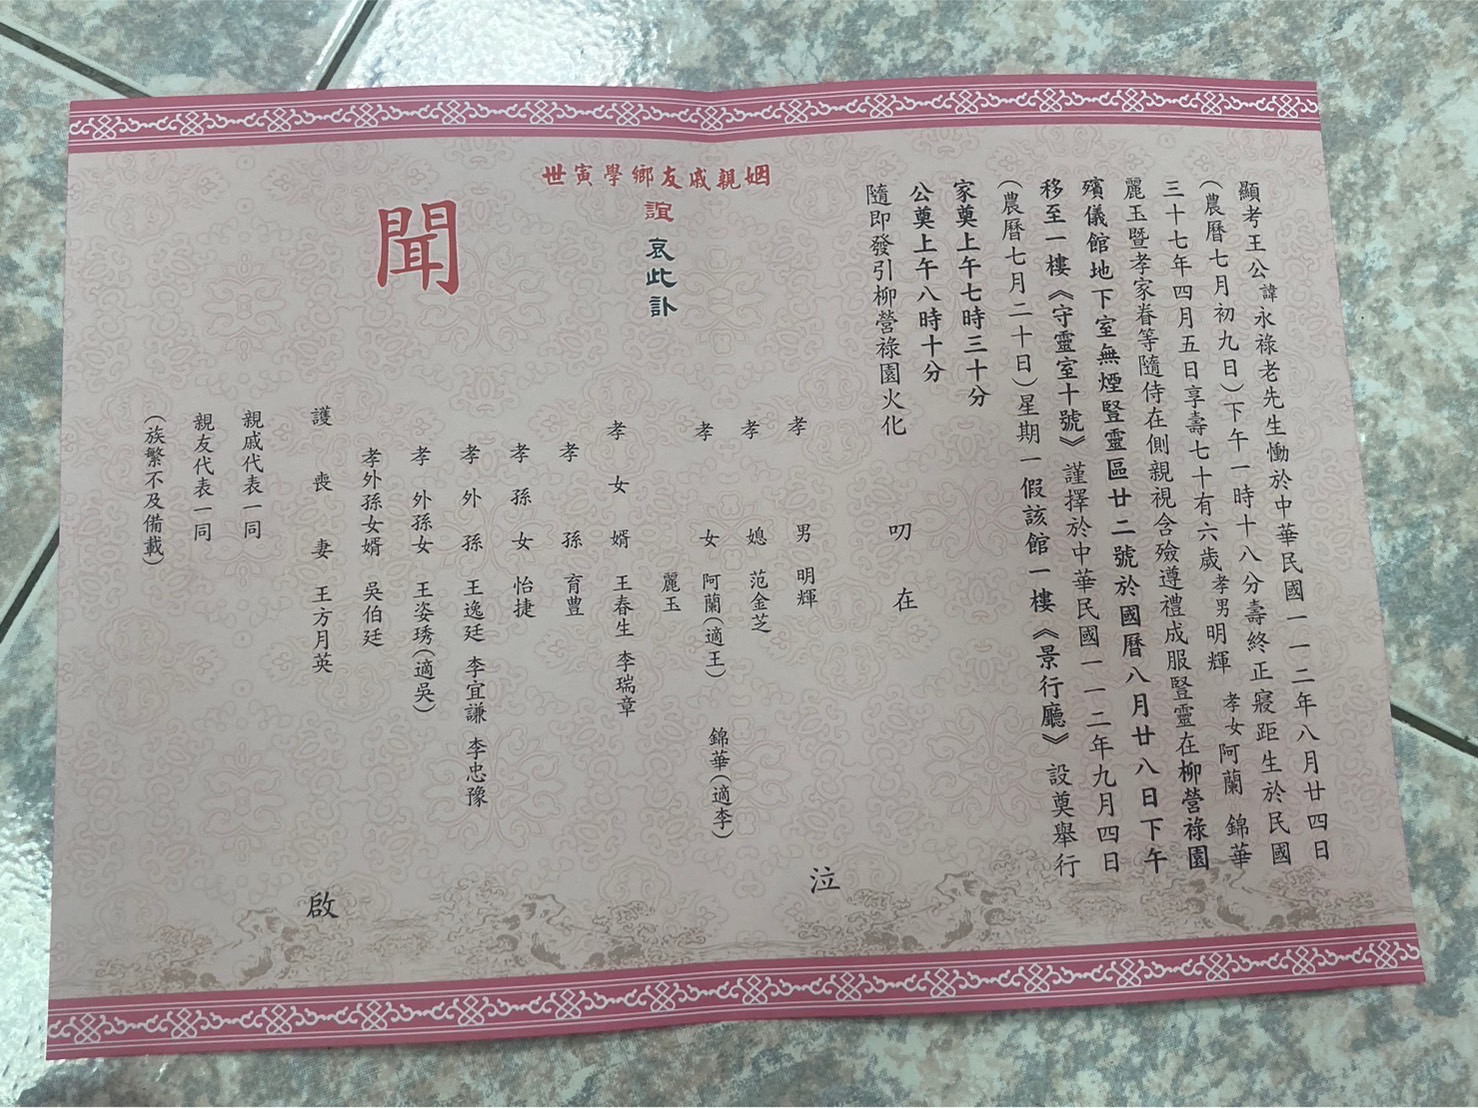 顯考王公諱永祿老先生慟於中華民國一一二年八月廿四日
(農曆七月初九日)下午一時十八分壽終正寢距生於民國
三十七年四月五日享壽七十有六歲孝男明輝 孝女阿蘭 錦華
麗玉暨孝家眷等隨侍在側親視含殮遵禮成服豎靈在柳營祿園
殯儀館地下室無煙豎靈區廿二號於國曆八月廿八日下午
移至一樓《守靈室十號》謹擇於中華民國一一二年九月四日
(農曆七月二十日)星期一假該館一樓《景行廳》設奠舉行
家奠上午七時三十分
公奠上午八時十分
隨即發引柳營祿園火化
叨在
姻親戚友鄉學寅世
誼 哀此訃
聞
孝男 明輝
孝媳 范金芝
孝女 阿蘭(適王) 錦華(適李)
麗玉
孝女婿 王春生 李瑞章
孝孫 育豊
孝孫女 怡捷
孝外孫 王逸廷 李宜謙 李忠豫
孝外孫女 王姿琇(適吳)
孝外孫女婿 吳伯廷
泣
護喪妻 王方月英
啟
親戚代表一同
親友代表一同
(族繁不及備載)